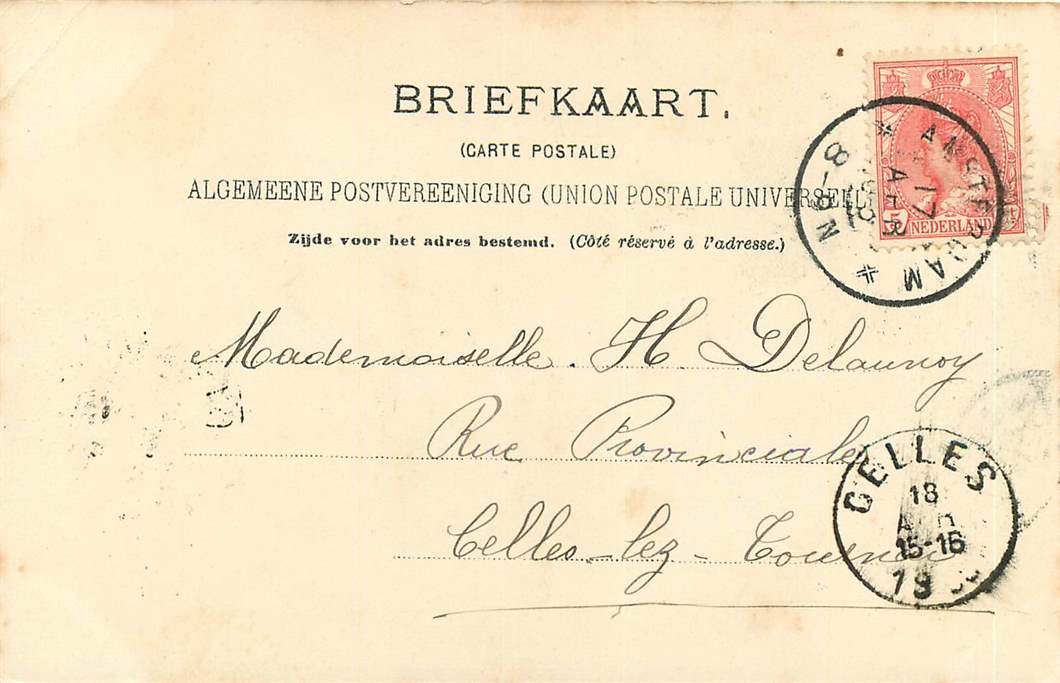 BRIEFKAART.
(CARTE POSTALE)
ALGEMEENE POSTVEREENIGING (UNION POSTALE UNIVERSELLE
Zijde voor het adres bestemd. (Côté réservé à l'adresse.)
5 NEDERLAND
AMSTERDAM
17
APR
8-9N
Mademoiselle. H. Delaunoy
Rue Provinciale
Celles-lez-Tournai
CELLES
18
15-16
19